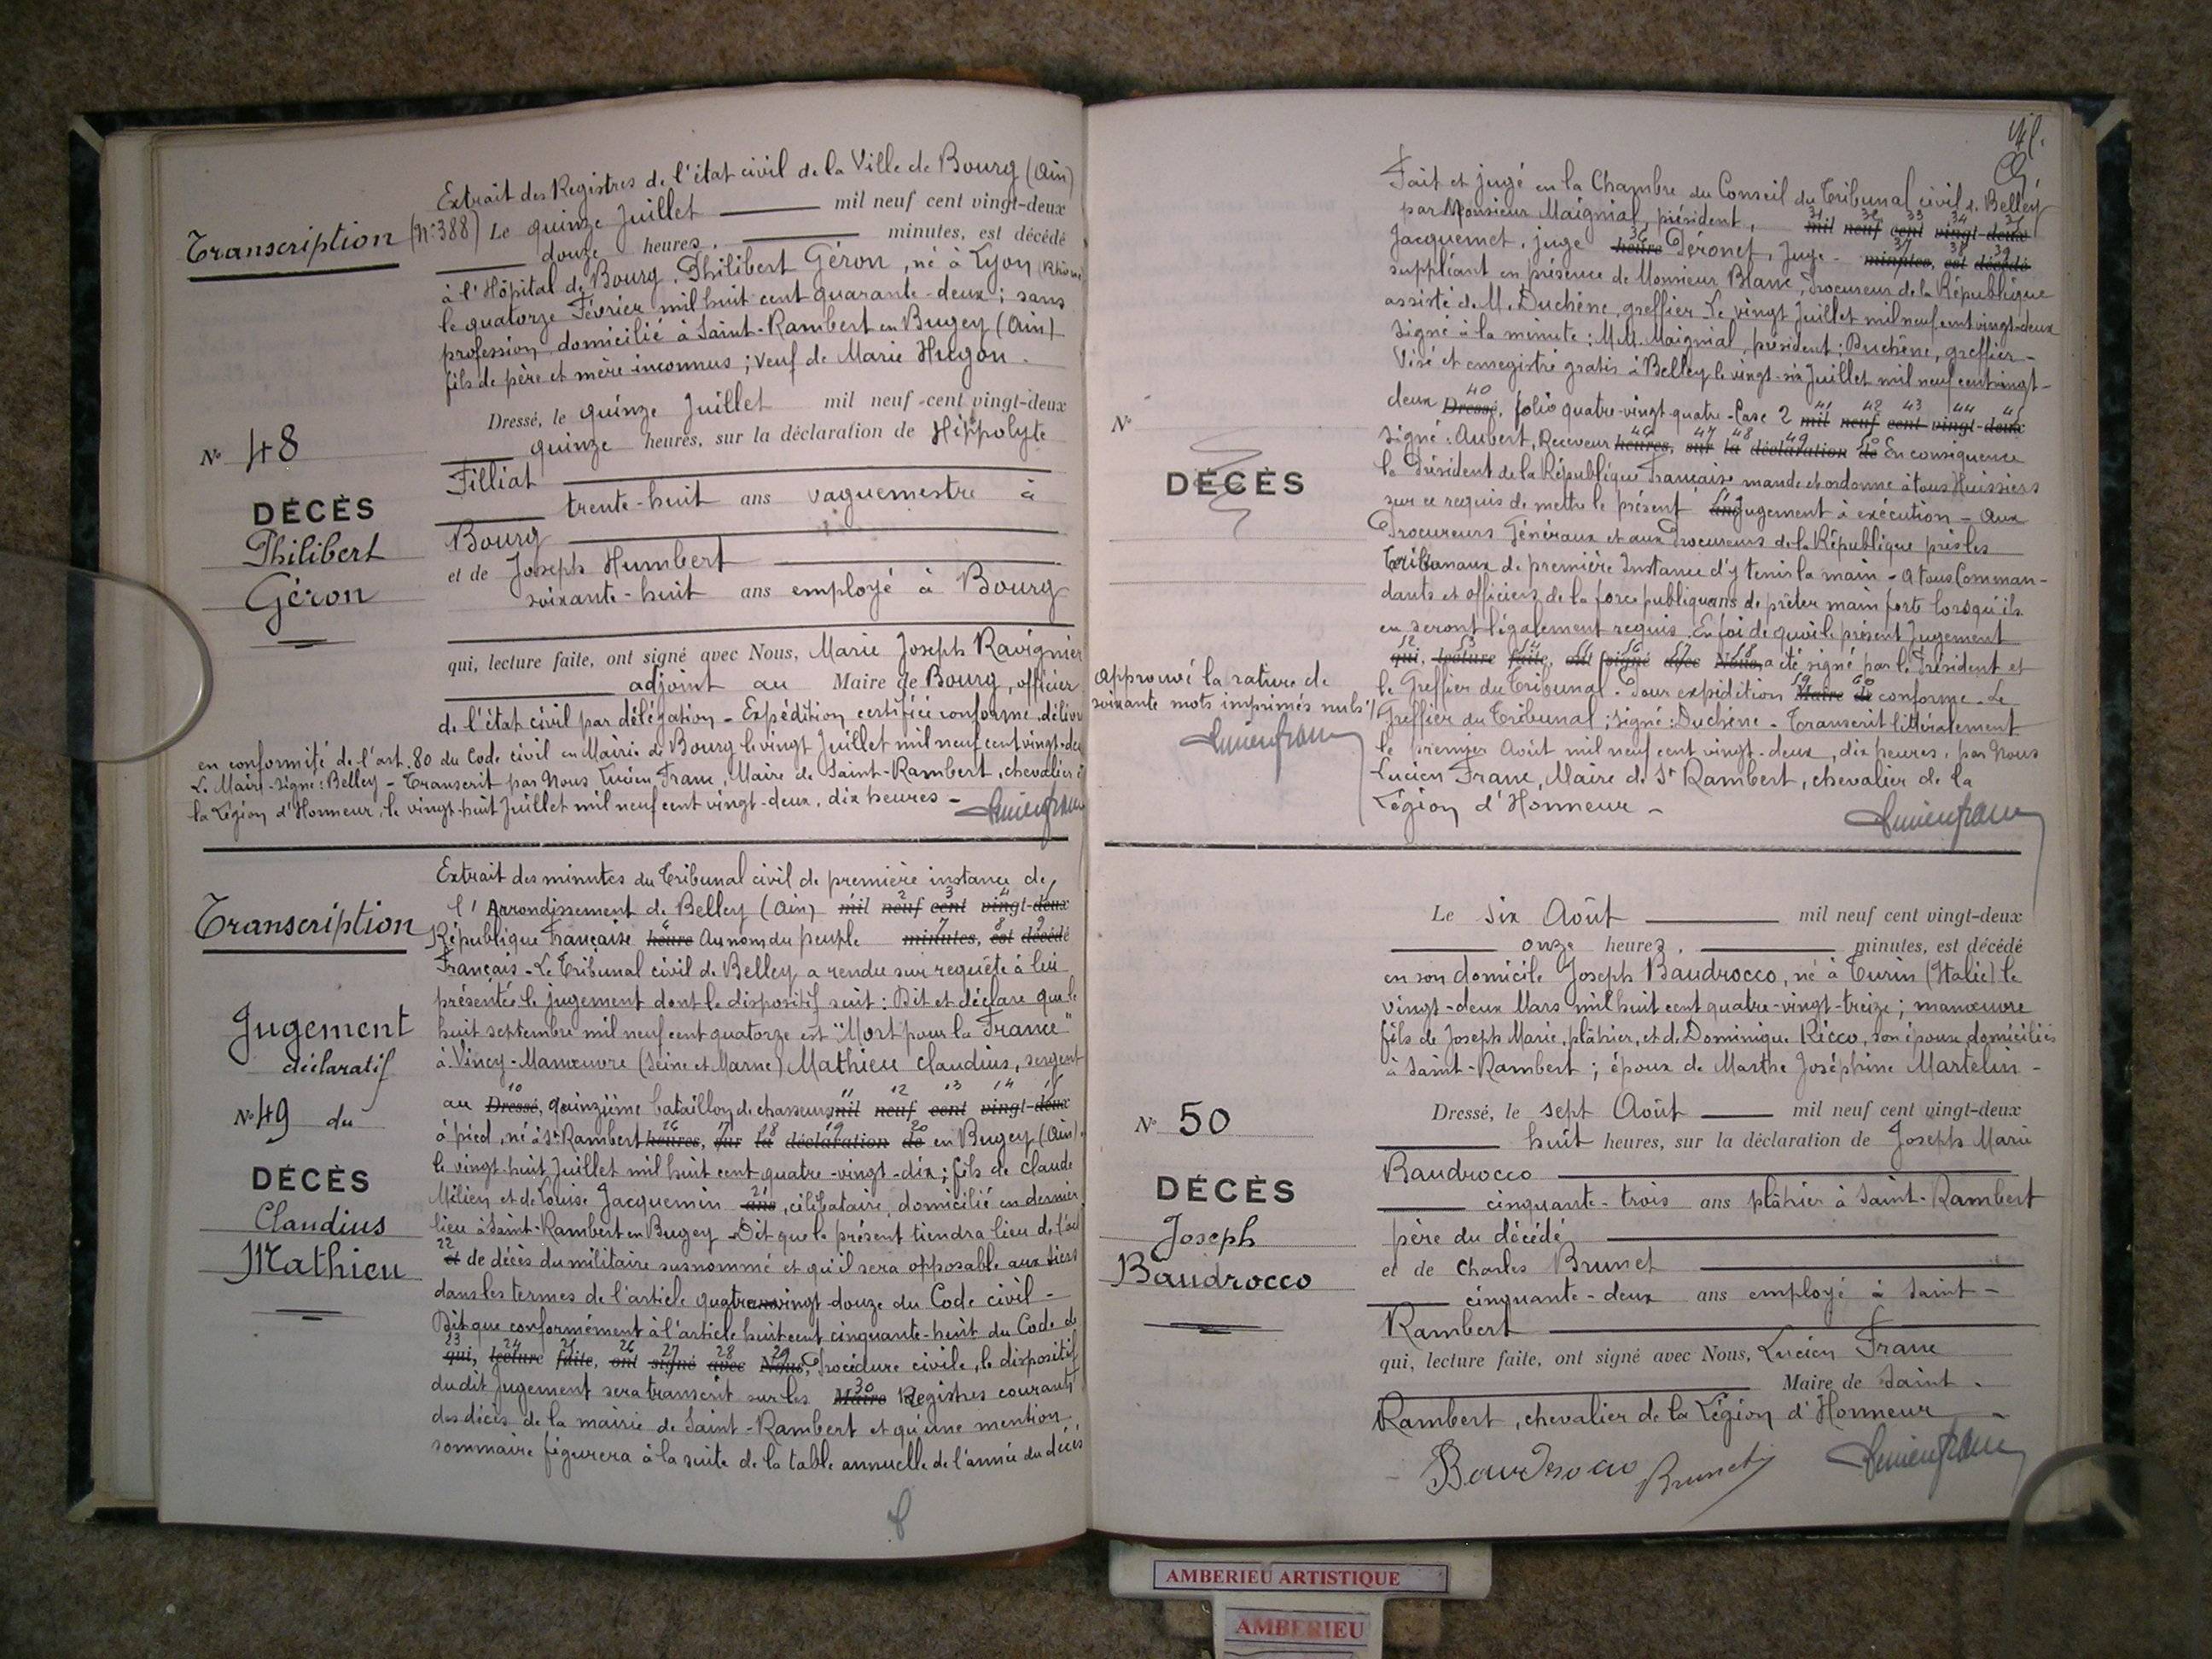 Extrait des Registres de l'état civil de la Ville de Bourg (Ain)
Transcription (N°388) Le quinze Juillet mil neuf cent vingt-deux
douze heures, minutes, est décédé
à l'Hôpital de Bourg, Philibert Géron, né à Lyon (Rhône
le quatorze Février mil huit cent quarante-deux ; sans
profession, domicilié à Saint-Rambert en Bugey (Ain)
fils de père et mère inconnus ; veuf de Marie Hugon.
Dressé, le quinze Juillet mil neuf cent vingt-deux
quinze heures, sur la déclaration de Hippolyte
N° 48
Filliat
trente-huit ans vaguemestre à
DÉCÈS
Bourg
Philibert
et de Joseph Humbert
Géron
soixante-huit ans employé à Bourg
qui, lecture faite, ont signé avec Nous, Marie Joseph Ravignier
adjoint au Maire de Bourg, officier
de l'état civil par délégation - Expédition certifiée conforme, délivr
en conformité de l'art. 80 du Code civil en Mairie de Bourg le vingt Juillet mil neuf cent vingt-deu
Le Maire - signé : Belley - Transcrit par Nous Lucien Franc, Maire de Saint-Rambert, chevalier d
la Légion d'Honneur, le vingt-huit Juillet mil neuf cent vingt-deux, dix heures -
Extrait des minutes du Tribunal civil de première instance de
l'Arrondissement de Belley (Ain) mil neuf cent vingt-deux
Transcription
République Française heure Au nom du peuple minutes, est décédé
Français - Le Tribunal civil de Belley a rendu sur requête à lui
présentée le jugement dont le dispositif suit : Dit et déclare que le
Jugement
huit septembre mil neuf cent quatorze est "Mort pour la France"
déclaratif
à Vincy-Manœuvre (Seine et Marne) Mathieu Claudius, sergent
au Dressé, quinzième bataillon de chasseurs mil neuf cent vingt-deux
N° 49 du
à pied, né à St Rambert heures, sur la déclaration de en Bugey (Ain)
le vingt-huit Juillet mil huit cent quatre-vingt-dix ; fils de Claude
DÉCÈS
Milien et de Louise Jacquemin ans, célibataire, domicilié en dernier
Claudius
lieu à Saint-Rambert en Bugey - Dit que le présent tiendra lieu de l'ac
Mathieu
et de décès du militaire susnommé et qu'il sera opposable aux tiers
dans les termes de l'article quatre ans vingt-douze du Code civil -
Dit que conformément à l'article huit cent cinquante-huit du Code de
qui, lecture faite, ont signé avec Nous, Procédure civile, le dispositif
dudit Jugement sera transcrit sur les Maire Registres courants
des décès de la mairie de Saint-Rambert et qu'une mention
sommaire figurera à la suite de la table annuelle de l'année du décès
Fait et jugé en la Chambre du Conseil du Tribunal civil de Belley
par Monsieur Maignial, président, mil neuf cent vingt-deux
Jacquemet, juge heure Déronet, Juge - minutes, est décédé
suppléant en présence de Monsieur Blanc, Procureur de la République
assisté de M. Duchêne, greffier Le vingt Juillet mil neuf cent vingt-deux
signé à la minute : M.M. Maignial, président ; Duchêne, greffier -
Visé et enregistré gratis à Belley le vingt-six Juillet mil neuf cent vingt-
deux Dressé, folio quatre-vingt-quatre - Case 2 mil neuf cent vingt-deux
N°
signé : Aubert, Receveur heures, sur la déclaration de En conséquence
le Président de la République Française mande et ordonne à tous Huissiers
DÉCÈS
sur ce requis de mettre le présent ans jugement à exécution - Aux
Procureurs Généraux et aux Procureurs de la République près les
Tribunaux de première Instance d'y tenir la main - A tous Comman-
dants et officiers de la force publique ans de prêter main forte lorsqu'ils
en seront légalement requis. En foi de quoi le présent Jugement
qui, lecture faite, ont signé avec Nous, a été signé par le Président et
Approuvé la rature de
le Greffier du Tribunal. Pour expédition Maire de conforme - Le
soixante mots imprimés nuls
Greffier du Tribunal ; signé : Duchêne - Transcrit littéralement
le premier Août mil neuf cent vingt-deux, dix heures, par Nous
Lucien Franc, Maire de St Rambert, chevalier de la
Légion d'Honneur -
Le six Août mil neuf cent vingt-deux
onze heures, minutes, est décédé
en son domicile Joseph Baudrocco, né à Turin (Italie) le
vingt-deux Mars mil huit cent quatre-vingt-treize ; manœuvre
fils de Joseph Marie, plâtrier, et de Dominique Ricco, son épouse domiciliés
à Saint-Rambert ; époux de Marthe Joséphine Martelin -
N° 50
Dressé, le sept Août mil neuf cent vingt-deux
huit heures, sur la déclaration de Joseph Marie
Baudrocco
DÉCÈS
cinquante-trois ans plâtrier à Saint-Rambert
Joseph
père du décédé
Baudrocco
et de Charles Brunet
cinquante-deux ans employé à Saint-
Rambert
qui, lecture faite, ont signé avec Nous, Lucien Franc
Maire de Saint-
Rambert, chevalier de la Légion d'Honneur -
Baudrocco Brunet
AMBERIEU ARTISTIQUE
AMBERIEU